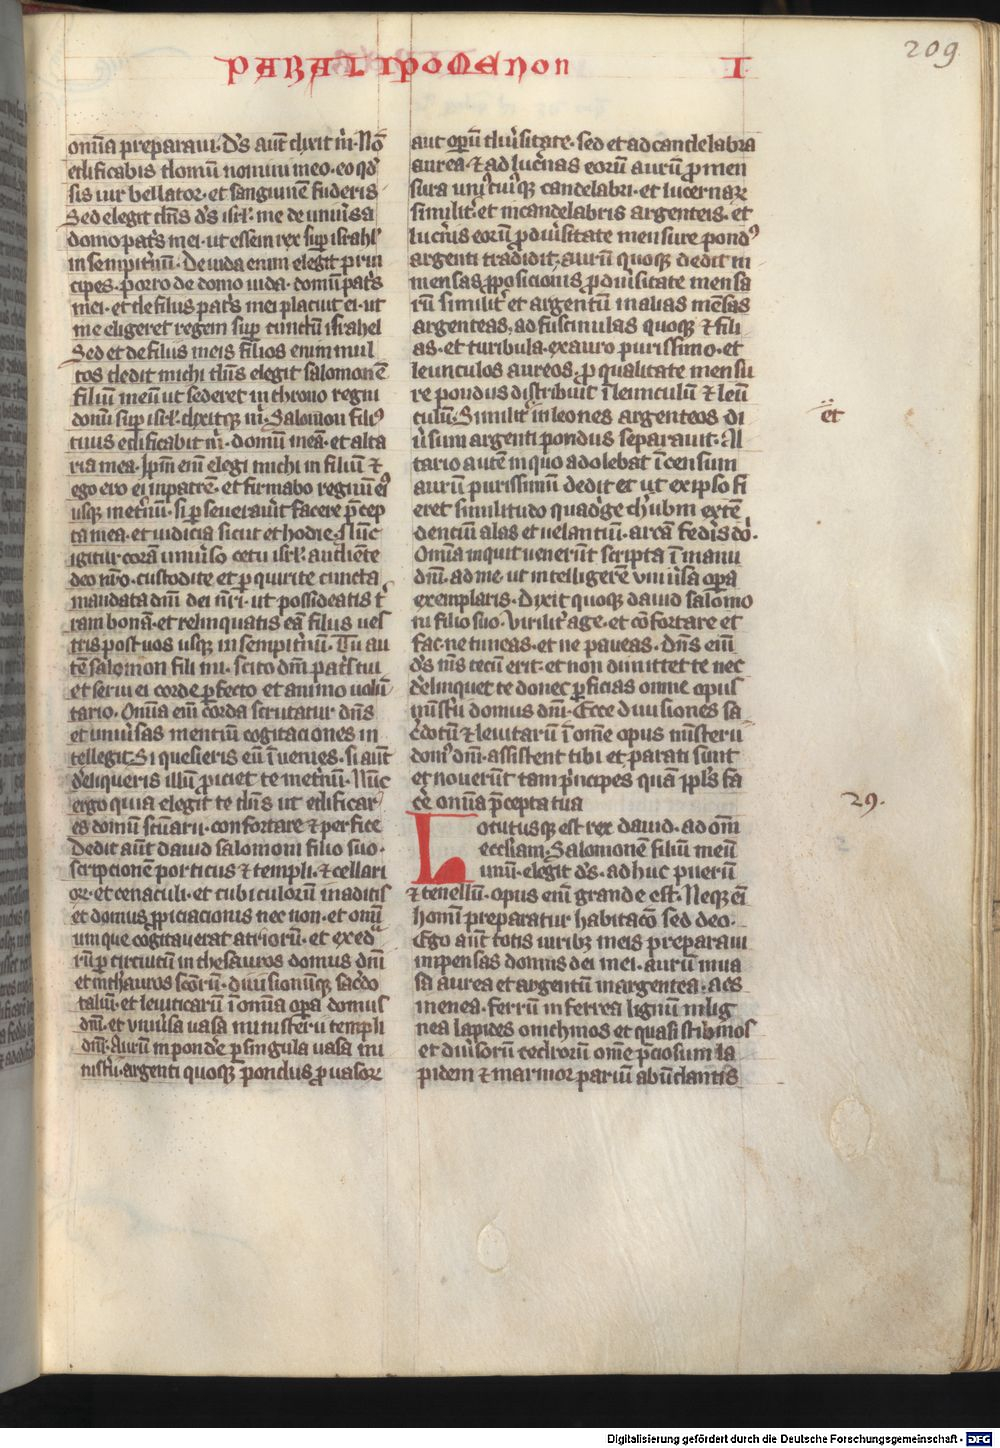 209
PARALIPOMENON I
om̅ia preparaui. D's aut̅ dixit m̅. No̅
edificabis domu̅ nomini meo. eo qd̅
sis uir bellator. et sanguine̅ fuderis
Sed elegit dn̅s d's isrl'. me de uniu'sa
domo pat's mei. ut essem rex sup̅ israhl'
in sempit'nu̅. De iuda enim elegit prin
cipes. porro de domo iuda. domu̅ pat's
mei. et de filiis pat's mei placuit ei. ut
me eligeret regem sup̅ cunctu̅ israhel
Sed et de filiis meis filios enim mul
tos dedit michi dn̅s elegit salomone̅
filiu̅ meu̅ ut sederet in throno regni
domi̅ sup̅ isrl'. dixitque m̅. Salomon fili'
tuus edificabit m̅. domu̅ mea̅. et alta
ria mea. Ip̅m eni̅ elegi michi in filiu̅ ⁊
ego ero ei in patre̅. et firmabo regnu̅ ei'
usq̢ in et'nu̅. si p̲seuerau'it facere p̅cep
ta mea. et iudicia sicut et hodie. Nu̅c
igitur cora̅ uniu'so cetu isrl'. audie̅te
deo nr̅o. custodite et p̲quirite cuncta
mandata dn̅i dei nr̅i. ut possideatis t'
ram bona̅. et relinquatis ea̅ filiis ues
tris post uos usq̢ in sempit'nu̅. Tu au
te̅ salomon fili mi. scito dm̅ pat's tui
et serui ei corde p̲fecto et animo uolu̅
tario. Om̅ia eni̅ corda scrutatur dn̅s
et uniu'sas mentiu̅ cogitaciones in
tellegit. Si quesieris eu̅ i̅uenies. si aut̅
d'eliqueris illu̅ p̲iciet te in et'nu̅. Nu̅c
ergo quia elegit te dn̅s ut edificar'
es domu̅ sc̅uarii. confortare ⁊ perfice
Dedit aut̅ dauid salomoni filio suo.
scripcionem porticus ⁊ templi. ⁊ cellari
or̅. et cenaculi. et cubiculoru̅ in aditis
et domus p̲piciacionis nec non. et om̅i
um que cogitauerat atrioru̅. et exed'
ru̅ p̲ circuitu̅ in thesauros domus dn̅i
et in th'auros sc̅oru̅. diuisionumq̢ sac'do
taliu̅. et leuiticaru̅ i̅ om̅ia op̲a domus
dn̅i. et uniu'sa uasa ministerii templi
dn̅i. Auru̅ in pond'e p̲ singula uasa mi
nist'ii. argenti quoq̢ pondus p̲ uasor̅
aut op̲u̅ diu'sitate. sed et ad candelabra
aurea. ⁊ ad luc'nas eoru̅ auru̅ p̲ men
sura uni'cui'q̢ candelabri. et lucernar̅
similit'. et in candelabris argenteis. et
luc'nis eoru̅ p̲ diu'sitate mensure pond'
argenti tradidit. auru̅ quoq̢ dedit in
mensas p̲posicionis p̲ diu'sitate mensa
ru̅ similit' et argentu̅ in alias me̅sas
argenteas. ad fuscinulas quoq̢ ⁊ fili
as. et turibula. ex auro purissimo. et
leunculos aureos. p̲ qualitate mensu
re pondus distribuit i̅ leunculu̅ ⁊ leu̅
culu̅. Similit' in leones argenteos di
u'sum argenti pondus separauit. Al
tario aute̅ in quo adolebat' i̅censum
auru̅ purissimu̅ dedit et ut ex ip̲so fi
et
eret similitudo quad'ge ch'ubin exte̅
dencium alas et uelantiu̅. arca̅ fed'is do̅.
Om̅ia inquit uenerunt scripta i̅ manu
dn̅i. ad me. ut intelligere̅ uniu'sa op̲a
exemplaris. Dixit quoq̢ dauid salomo
ni filio suo. Virilit' age. et co̅fortare et
fac. ne timeas. et ne paueas. Dn̅s eni̅
d's m̅s tecu̅ erit. et non dimittet te nec
d'elinquet te donec p̲ficias omne opus
minist'ii domus dn̅i. Ecce diuisiones sa
c'dotu̅ ⁊ leuitaru̅ i̅ om̅e opus minist'ii
dom' dn̅i. assistent tibi et parati sunt
et nouerunt tam p'ncipes qua̅ pp̲l's fa
c'e om̅ia p̅cepta tua
29.
Locutusq̢ est rex dauid. ad om̅
eccl̅iam. Salomone̅ filiu̅ meu̅
unu̅. elegit d's. adhuc pueru̅
⁊ tenellu̅. opus eni̅ grande est. Neq̢ ei̅
homi̅ preparatur habitac̅o sed deo.
Ego aut̅ totis uirib̢ meis preparaui
inpensas domus dei mei. auru̅ in ua
sa aurea et argentu̅ in argentea. aes
in enea. ferru̅ in ferrea lignu̅ in lig
nea lapides onichinos et quasi stibinos
et diu'soru̅ coloru̅ om̅e p̅ciosum la
pidem ⁊ marmor pariu̅ abu̅dantis
Digitalisierung gefördert durch die Deutsche Forschungsgemeinschaft - DFG